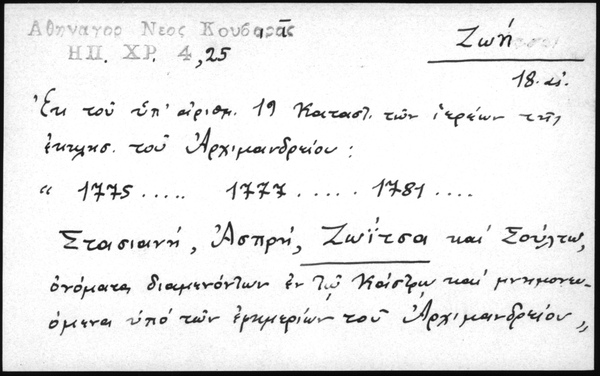 Αθηναγορ Νεος Κουβαρᾶς
Ζωή
ΗΠ. ΧΡ. 4,25
18. αἰ.
Ἐκ τοῦ ὑπ' ἀριθμ. 19 Καταστ. τῶν ἱερέων τῆς
ἐκκλησ. τοῦ Ἀρχιμανδρείου:
“ 1775..... 1777..... 1781....
Στασιανή, Ἀσπρή, Ζωΐτσα καί Σούλτω,
ὀνόματα διαμενόντων ἐν τῷ Κάστρω καί μνημονευ-
όμενα ὑπό τῶν ἐφημερίων τοῦ Ἀρχιμανδρείου„